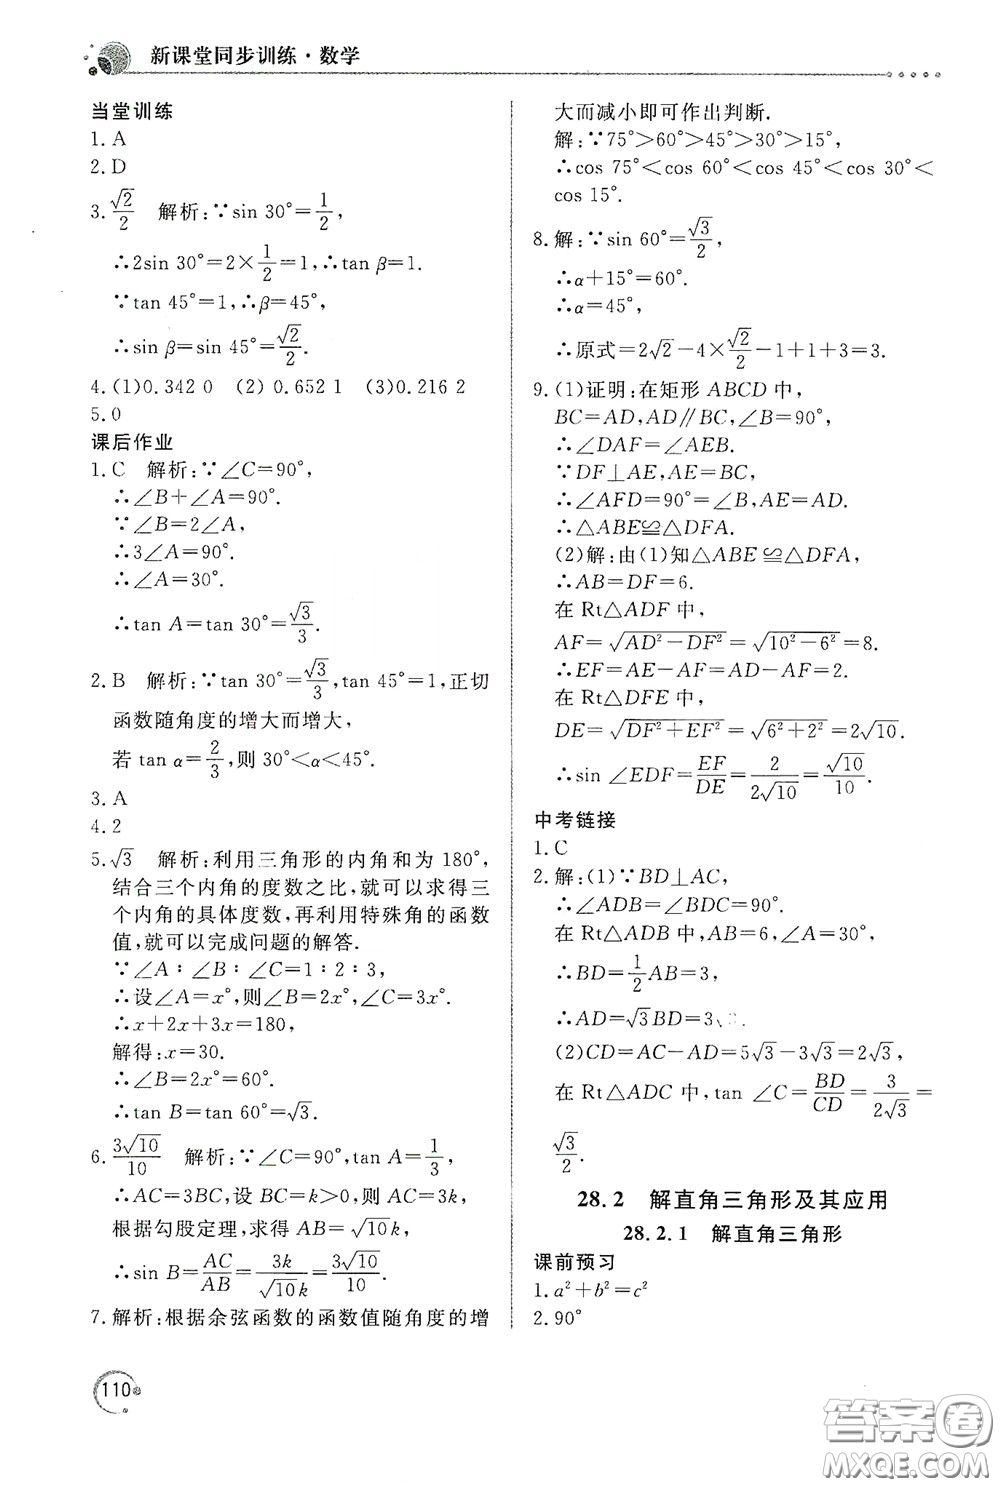 新课堂同步训练·数学
当堂训练
1. A
2. D
3. √2/2 解析:∵sin 30°=1/2,
∴2sin 30°=2×1/2=1,∴tan β=1.
∵tan 45°=1,∴β=45°,
∴sin β=sin 45°=√2/2.
4. (1)0.342 0 (2) 0.652 1 (3)0.216 2
5. 0
课后作业
1. C 解析:∵∠C=90°,
∴∠B+∠A=90°.
∵∠B=2∠A,
∴3∠A=90°.
∴∠A=30°.
∴tan A=tan 30°=√3/3.
2. B 解析:∵tan 30°=√3/3,tan 45°=1,正切
函数随角度的增大而增大,
若 tan α=2/3,则 30°<α<45°.
3. A
4. 2
5. √3 解析:利用三角形的内角和为 180°,
结合三个内角的度数之比,就可以求得三
个内角的具体度数,再利用特殊角的函数
值,就可以完成问题的解答.
∵∠A∶∠B∶∠C=1∶2∶3,
∴设∠A=x°,则∠B=2x°,∠C=3x°.
∴x+2x+3x=180,
解得:x=30.
∴∠B=2x°=60°.
∴tan B=tan 60°=√3.
6. 3√10/10 解析:∵∠C=90°,tan A=1/3,
∴AC=3BC,设 BC=k>0,则 AC=3k,
根据勾股定理,求得 AB=√10k,
∴sin B=AC/AB=3k/√10k=3√10/10.
7. 解析:根据余弦函数的函数值随角度的增
大而减小即可作出判断.
解:∵75°>60°>45°>30°>15°,
∴cos 75°<cos 60°<cos 45°<cos 30°<
cos 15°.
8. 解:∵sin 60°=√3/2,
∴α+15°=60°.
∴α=45°.
∴原式=2√2-4×√2/2-1+1+3=3.
9. (1)证明:在矩形 ABCD 中,
BC=AD,AD∥BC,∠B=90°,
∴∠DAF=∠AEB.
∵DF⊥AE,AE=BC,
∴∠AFD=90°=∠B,AE=AD.
∴△ABE≌△DFA.
(2)解:由(1)知△ABE≌△DFA,
∴AB=DF=6.
在 Rt△ADF 中,
AF=√(AD²-DF²)=√(10²-6²)=8.
∴EF=AE-AF=AD-AF=2.
在 Rt△DFE 中,
DE=√(DF²+EF²)=√(6²+2²)=2√10.
∴sin ∠EDF=EF/DE=2/2√10=√10/10.
中考链接
1. C
2. 解:(1)∵BD⊥AC,
∴∠ADB=∠BDC=90°.
在 Rt△ADB 中,AB=6,∠A=30°,
∴BD=1/2AB=3,
∴AD=√3BD=3
(2)CD=AC-AD=5√3-3√3=2√3,
在 Rt△ADC 中,tan ∠C=BD/CD=3/2√3=
√3/2.
28.2 解直角三角形及其应用
28.2.1 解直角三角形
课前预习
1. a²+b²=c²
2. 90°
110
答案圈
MXQE.COM